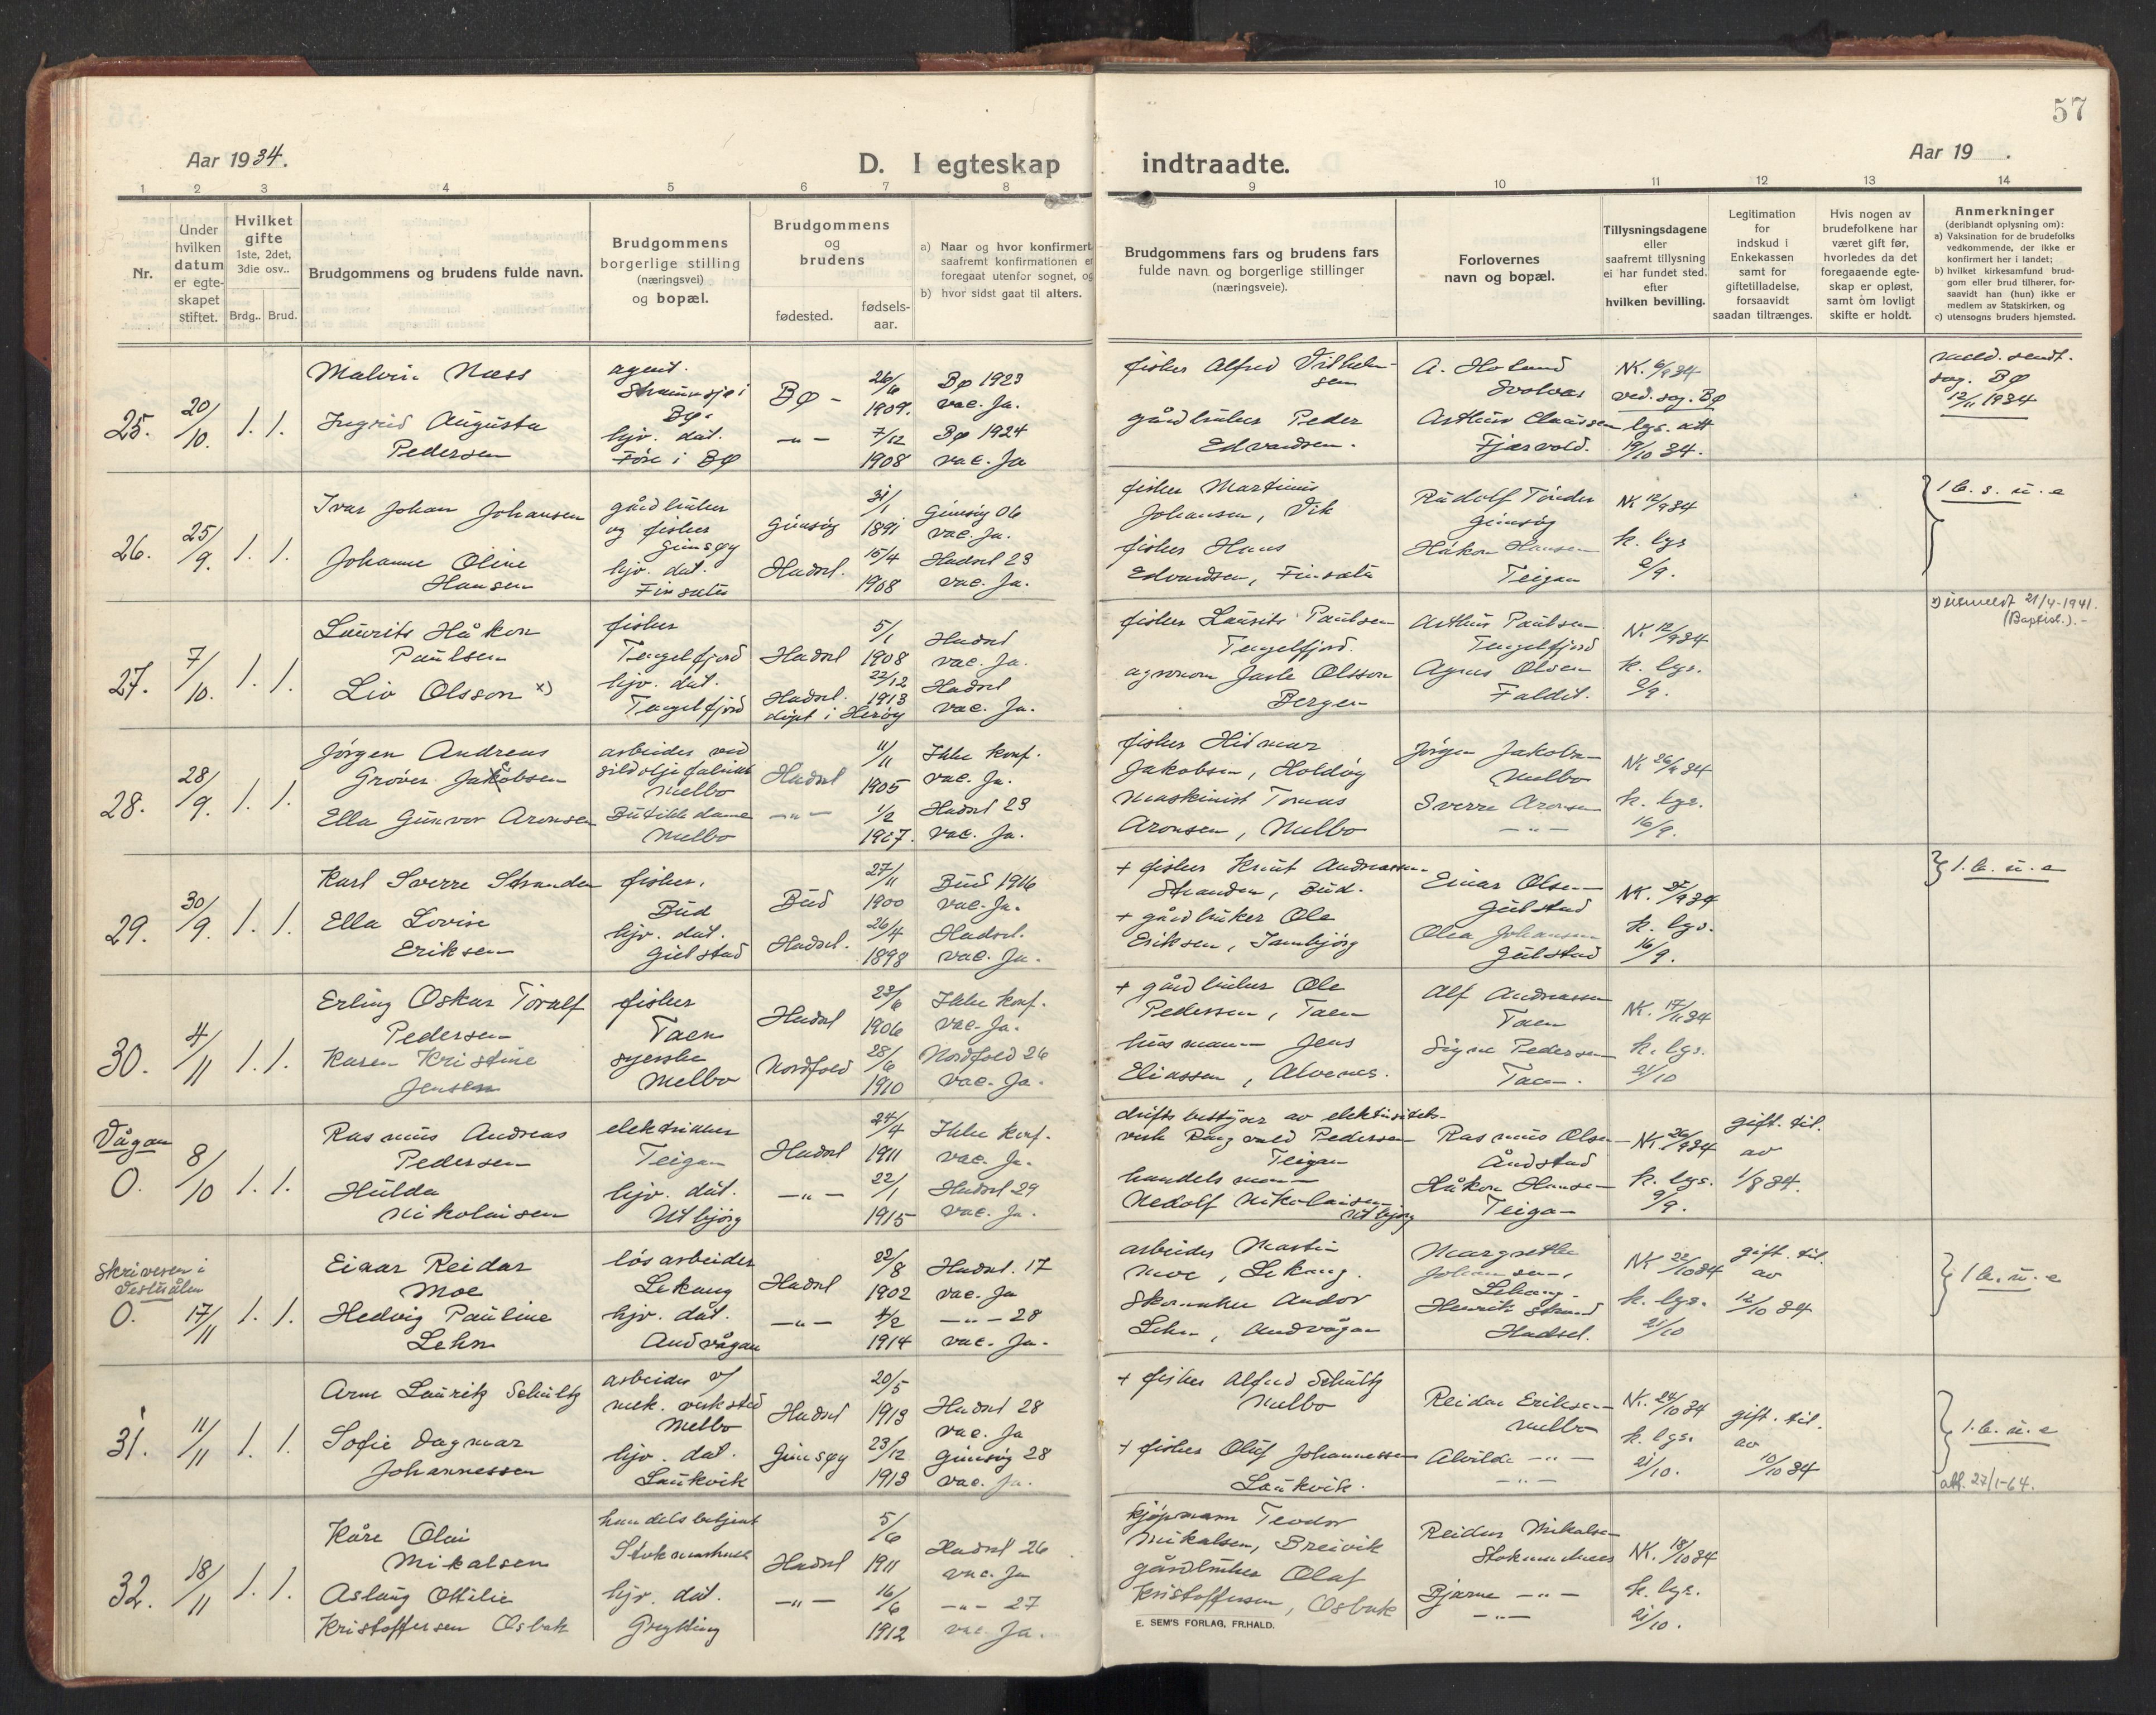 57
Aar 1934.
D. I egteskap indtraadte.
Aar 19 .
1 2 3 4 5 6 7 8 9 10 11 12 13 14
Nr.
Under
hvilken
datum
er egte-
skapet
stiftet.
Hvilket
gifte
1ste, 2det,
3die osv..
Brdg.. Brud.
Brudgommens og brudens fulde navn.
Brudgommens
borgerlige stilling
(næringsvei)
og bopæl.
Brudgommens
og
brudens
fødested.
fødsels-
aar.
a) Naar og hvor konfirmert
saafremt konfirmationen er
foregaat utenfor sognet, og
b) hvor sidst gaat til alters.
Brudgommens fars og brudens fars
fulde navn og borgerlige stillinger
(næringsveie).
Forlovernes
navn og bopæl.
Tillysningsdagene
eller
saafremt tillysning
ei har fundet sted.
efter
hvilken bevilling.
Legitimation
for
indskud i
Enkekassen
samt for
giftetilladelse,
forsaavidt
saadan tiltrænges.
Hvis nogen av
brudefolkene har
været gift før,
hvorledes da det
foregaaende egte-
skap er opløst,
samt om lovligt
skifte er holdt.
Anmerkninger
(deriblandt oplysning om):
a) Vaksination for de brudefolks
vedkommende, der ikke er
konfirmert her i landet;
b) hvilket kirkesamfund brud-
gom eller brud tilhører, for-
saavidt han (hun) ikke er
medlem av Statskirken, og
c) utensogns bruders hjemsted.
25.
20/10.
1. 1.
Malvin Næss
Ingrid Augusta
Pedersen
agent.
Straumsjø i
Bø.
hjv. dat.
Føre i Bø
Bø -
-"-
26/6
1909.
7/12
1908
Bø 1923
vac. Ja.
Bø 1924
vac. Ja
fisker Alfred Vilhelm-
sen
gårdbruker Peder
Edvardsen.
A. Holand
Svolvær
Arthur Claussen
Fjærvold.
NK. 6/9 34
ved. sog. Bø
lys. att
19/10 34.
meld. sendt.
sog. Bø
12/11 1934
26.
25/9.
1. 1.
Ivar Johan Johansen
Johanne Oline
Hansen
gårdbruker
og fisker
Gimsøy
hjv. dat.
Finsæter
Gimsøy
Hadsel.
31/1
1891
15/4
1908
Gimsøy 06
vac. Ja.
Hadsel 23
vac. Ja.
fisker Martinus
Johansen, Vik
fisker Hans
Edvardsen, Finsæter
Rudolf Tønder
Gimsøy
Håkon Hansen
Teigan
NK 12/9 34
k. lys
2/9.
1 b. s. u. e
27.
7/10.
1. 1.
Laurits Håkon
Paulsen
Liv Olsson x)
fisker
Tengelfjord
hjv. dat.
Tengelfjord
Hadsel
Hadsel.
døpt i Herøy
5/1
1908
22/12
1913
Hadsel
vac. Ja.
Hadsel
vac. Ja.
fisker Laurits Paulsen
Tengelfjord.
agronom Jarle Olsson
Bergen
Arthur Paulsen
Tengelfjord
Agnes Olsen
Faldet.
NK 12/9 34
k. lys.
2/9.
x) Utmeldt 21/4-1941.
(Baptist.).-
28.
28/9.
1. 1.
Jørgen Andreas
Grøver Jakobsen
Ella Gunvor Aronsen
arbeider ved
sildoljefabrikk
Melbo
Butikkdame
Melbo
Hadsel
-"-
11/11
1905
1/2
1907.
Ikke konf.
vac. Ja.
Hadsel 23
vac. Ja.
fisker Hilmar
Jakobsen, Holdøy
Maskinist Tomas
Aronsen, Melbo
Jørgen Jakobsen
Melbo
Sverre Aronsen
-"-
k. lys.
16/9.
29.
30/9.
1. 1.
Karl Sverre Stranden
Ella Lovise
Eriksen
fisker.
Bud
hjv. dat.
Gulstad
Bud
Hadsel.
27/11
1900
26/4
1898
Bud 1916
vac. Ja.
Hadsel.
vac. Ja.
+ fisker Knut Andreassen
Stranden, Bud.
+ gårdbruker Ole
Eriksen, Sannbjørg
Einar Olsen
Gulstad
Olea Johansen
Gulstad
k. lys.
16/9.
1. b. u. e
30.
4/11
1. 1.
Erling Oskar Toralf
Pedersen
Karen Kristine
Jensen
fisker
Taen
syerske
Melbo
Hadsel
Nordfold
23/6
1906
28/6
1910
Ikke konf.
vac. Ja.
Nordfold 26
vac. Ja.
+ gårdbruker Ole
Pedersen, Taen
husmann Jens
Eliassen, Alvenes.
Alf Andreassen
Taen
Signe Pedersen
Taen.
NK. 17/11 34
k. lys.
21/10
Vågan
0.
8/10
1. 1.
Rasmus Andreas
Pedersen
Hulda
Nikolaisen
elektriker
Teigan
hjv. dat.
Utbjørg
Hadsel
-"-
24/4
1911
22/1
1915
Ikke konf.
vac. Ja.
Hadsel 29
vac. Ja.
driftsbestyrer av elektrisitets-
verk Rangvald Pedersen
Teigan
handelsmann
Nedolf Nikolaisen
Utbjørg
Rasmus Olsen
Åndstad
Håkon Hansen
Teigan
k. lys.
9/9.
gift. til.
av
1/8 34.
Skriveren i
Vesterålen
0.
17/11
1. 1.
Einar Reidar
Moe
Hedvig Pauline
Lehn
løsarbeider
Lekang
hjv. dat.
Andvågan
Hadsel
-"-
22/8
1902
4/2
1914
Hadsel. 17
vac. Ja
-"- 28
vac. Ja.
arbeider Martin
Moe, Lekang.
Skomaker Andor
Lehn, Andvågan
Margrethe
Johansen,
Lekang.
Henrik Strand
Hadsel.
NK 22/10 34
k. lys.
21/10
gift. til.
av
12/10 34
1 b. u. e
31.
11/11
1. 1.
Arne Lauritz Schultz
Sofie Dagmar
Johannessen
arbeider v/
mek. verksted
Melbo
hjv. dat.
Laukvik
Hadsel
Gimsøy
20/5
1913
23/12
1913
Hadsel 28
vac. Ja
Gimsøy 28
vac. Ja.
+ fisker Alfred Schultz
Melbo
+ fisker Oluf Johannessen
Laukvik.
Reidar Eriksen
Melbo
Alvilde -"-
-"-
NK. 24/10 34
k. lys.
21/10.
gift. til.
av
10/10 34
1. b. u. e
att. 27/1-64.
32.
18/11
1. 1.
Kåre Olai
Mikalsen
Aslaug Ottilie
Kristoffersen Osbak
handelsbetjent
Stokmarknes
hjv. dat.
Grytting
Hadsel
-"-
5/6
1911
16/6
1912
Hadsel 26
vac. Ja
-"- 27
vac. Ja.
kjøpmann Teodor
Mikalsen, Breivik
gårdbruker Olaf
Kristoffersen, Osbak
Reidar Mikalsen
Stokmarknes
Bjarne -"-
-"-
NK. 18/10 34
k. lys.
21/10.
E. SEM'S FORLAG, FR.HALD.